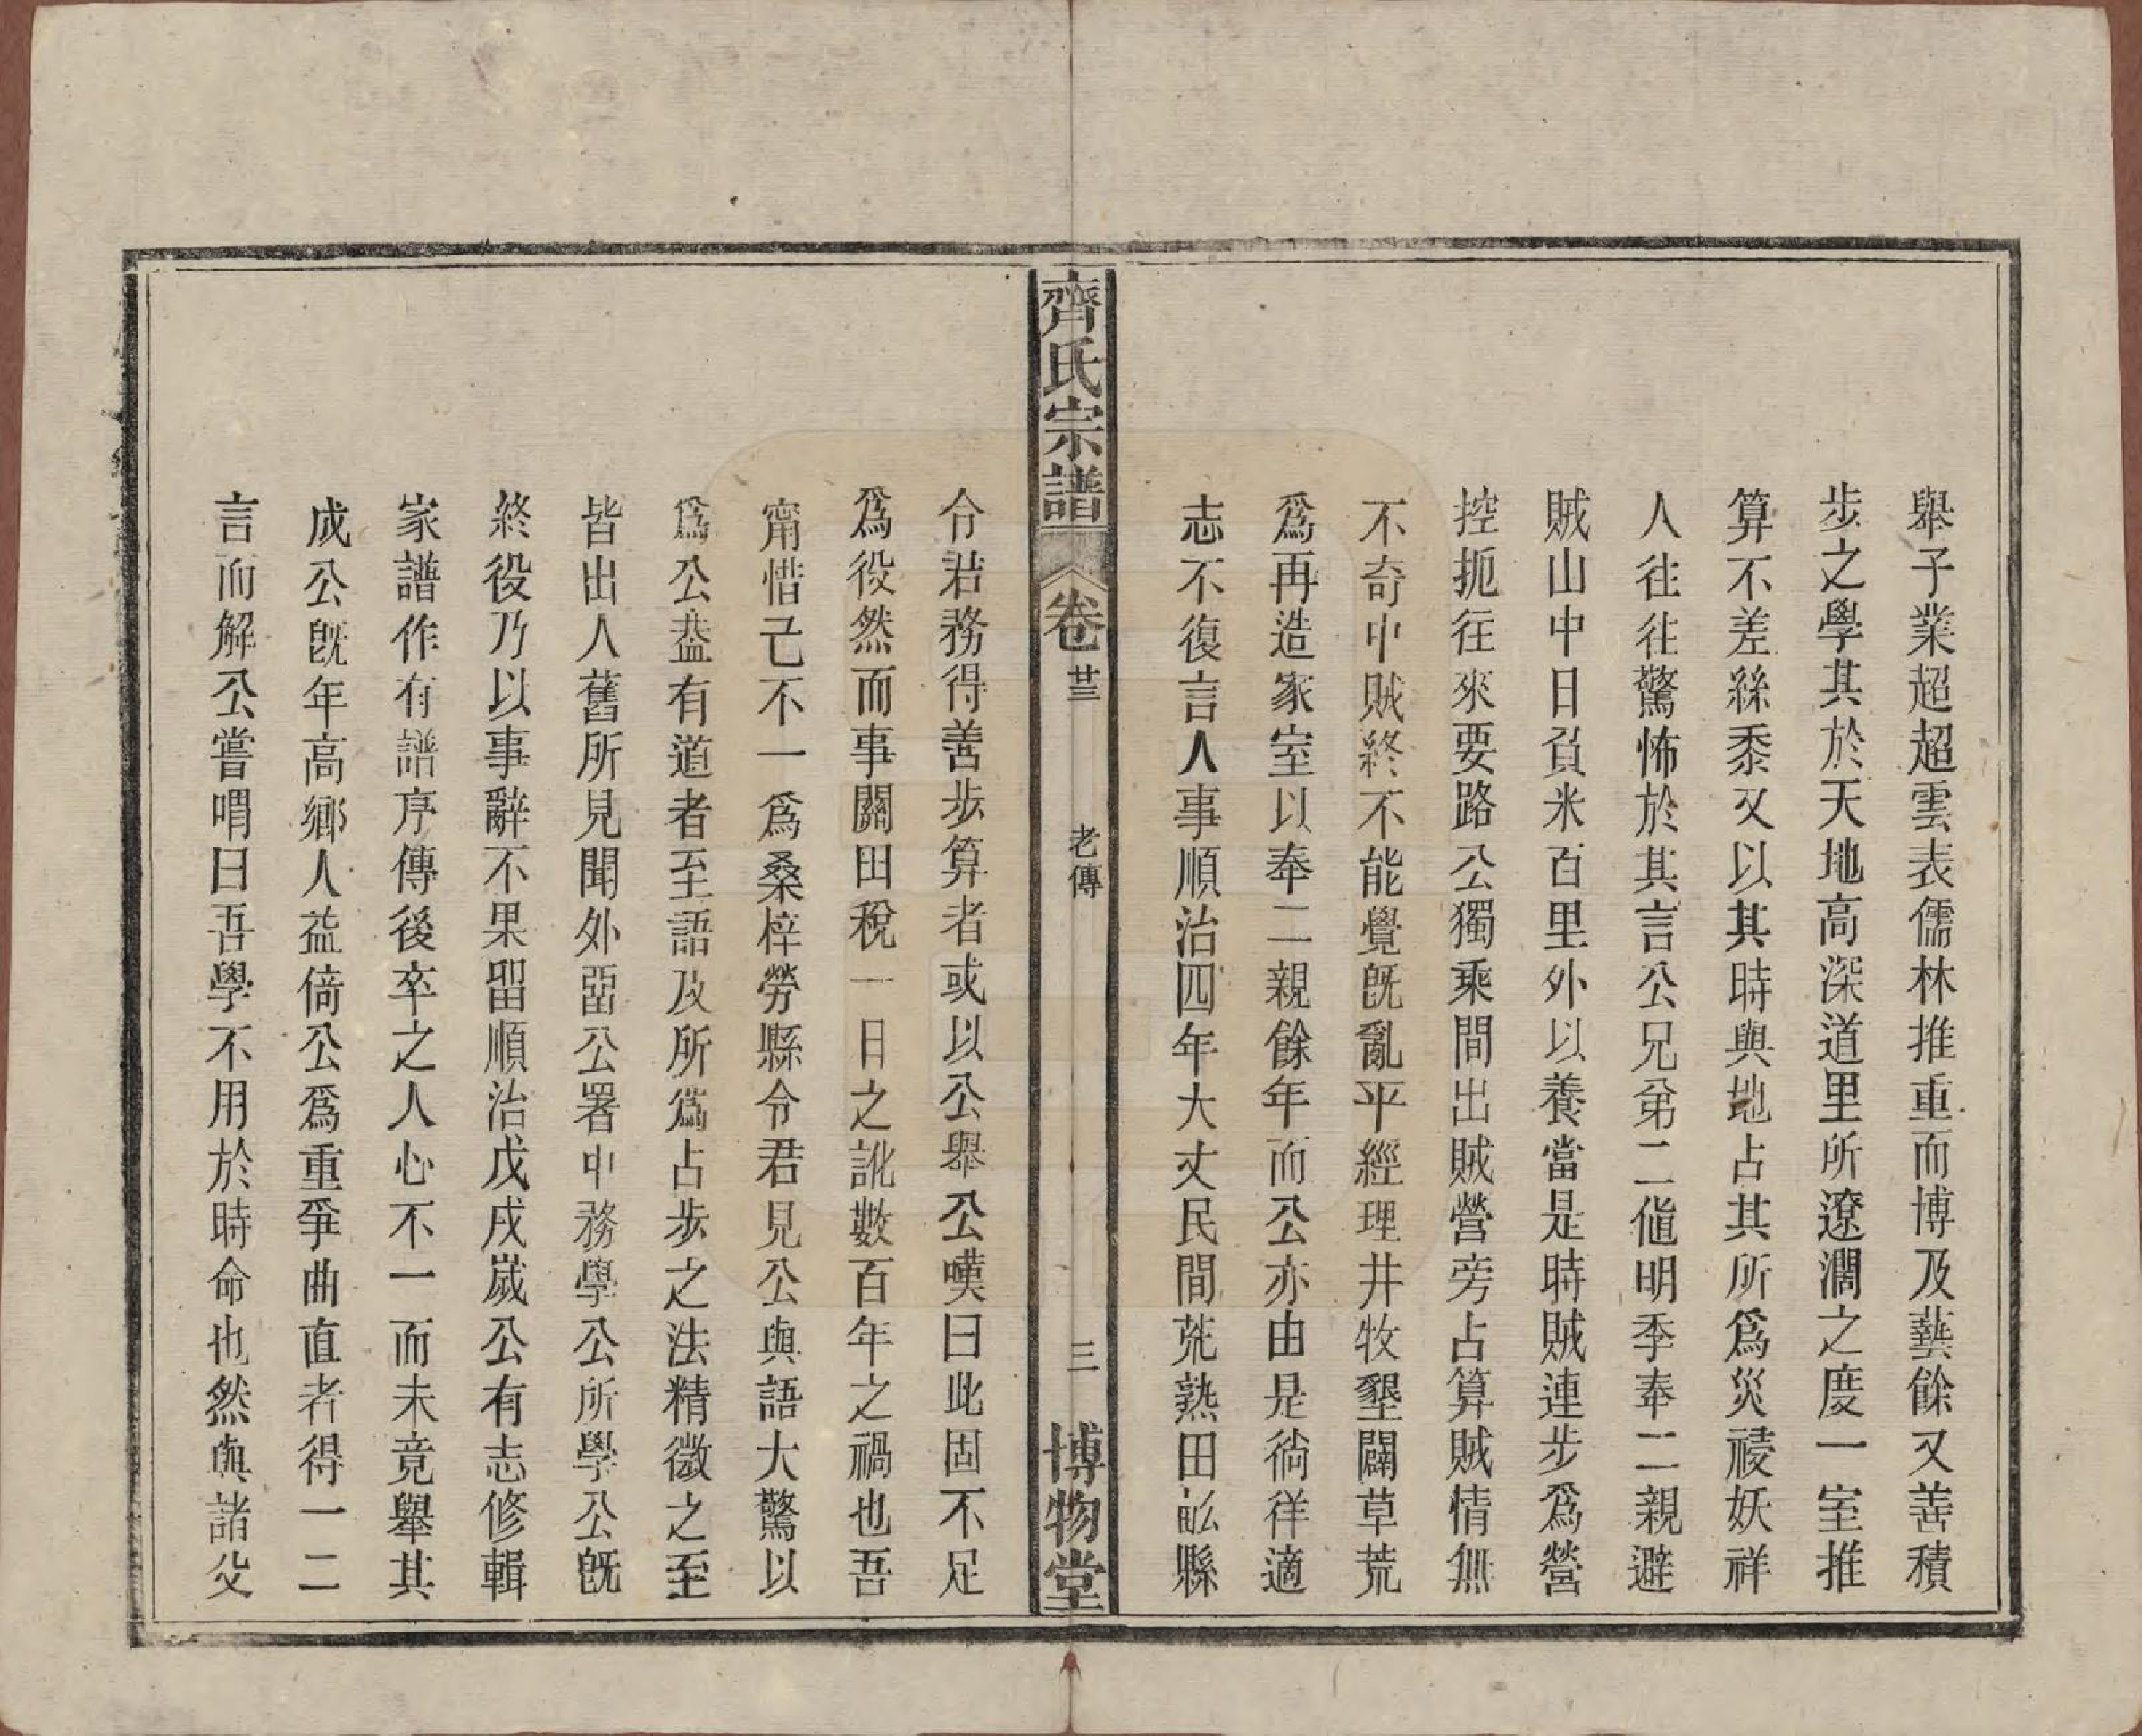 舉子業超超雲表儒林推重而博及藝餘又善積
步之學其於天地高深道里所遼濶之度一室推
算不差絲黍又以其時與地占其所爲災祲妖祥
人往往驚怖於其言公兄弟二値明季奉二親避
賊山中日負米百里外以養當是時賊連步爲營
控扼往來要路公獨乘間出賊營旁占算賊情無
不奇中賊終不能覺旣亂平經理井牧墾闢草荒
爲再造家室以奉二親餘年而公亦由是徜徉適
志不復言人事順治四年大丈民間荒熟田畆縣
齊氏宗譜
卷廿三
老傳
三
博物堂
令君務得善步算者或以公舉公嘆曰此固不足
爲役然而事關田稅一日之訛數百年之禍也吾
甯惜己不一爲桑梓勞縣令君見公與語大驚以
爲公葢有道者至語及所爲占步之法精微之至
皆出人舊所見聞外畱公署中務學公所學公旣
終役乃以事辭不果畱順治戊戌嵗公有志修輯
家譜作有譜序傳後卒之人心不一而未竟舉其
成公旣年高鄉人益倚公爲重爭曲直者得一二
言而解公嘗喟曰吾學不用於時命也然與諸父